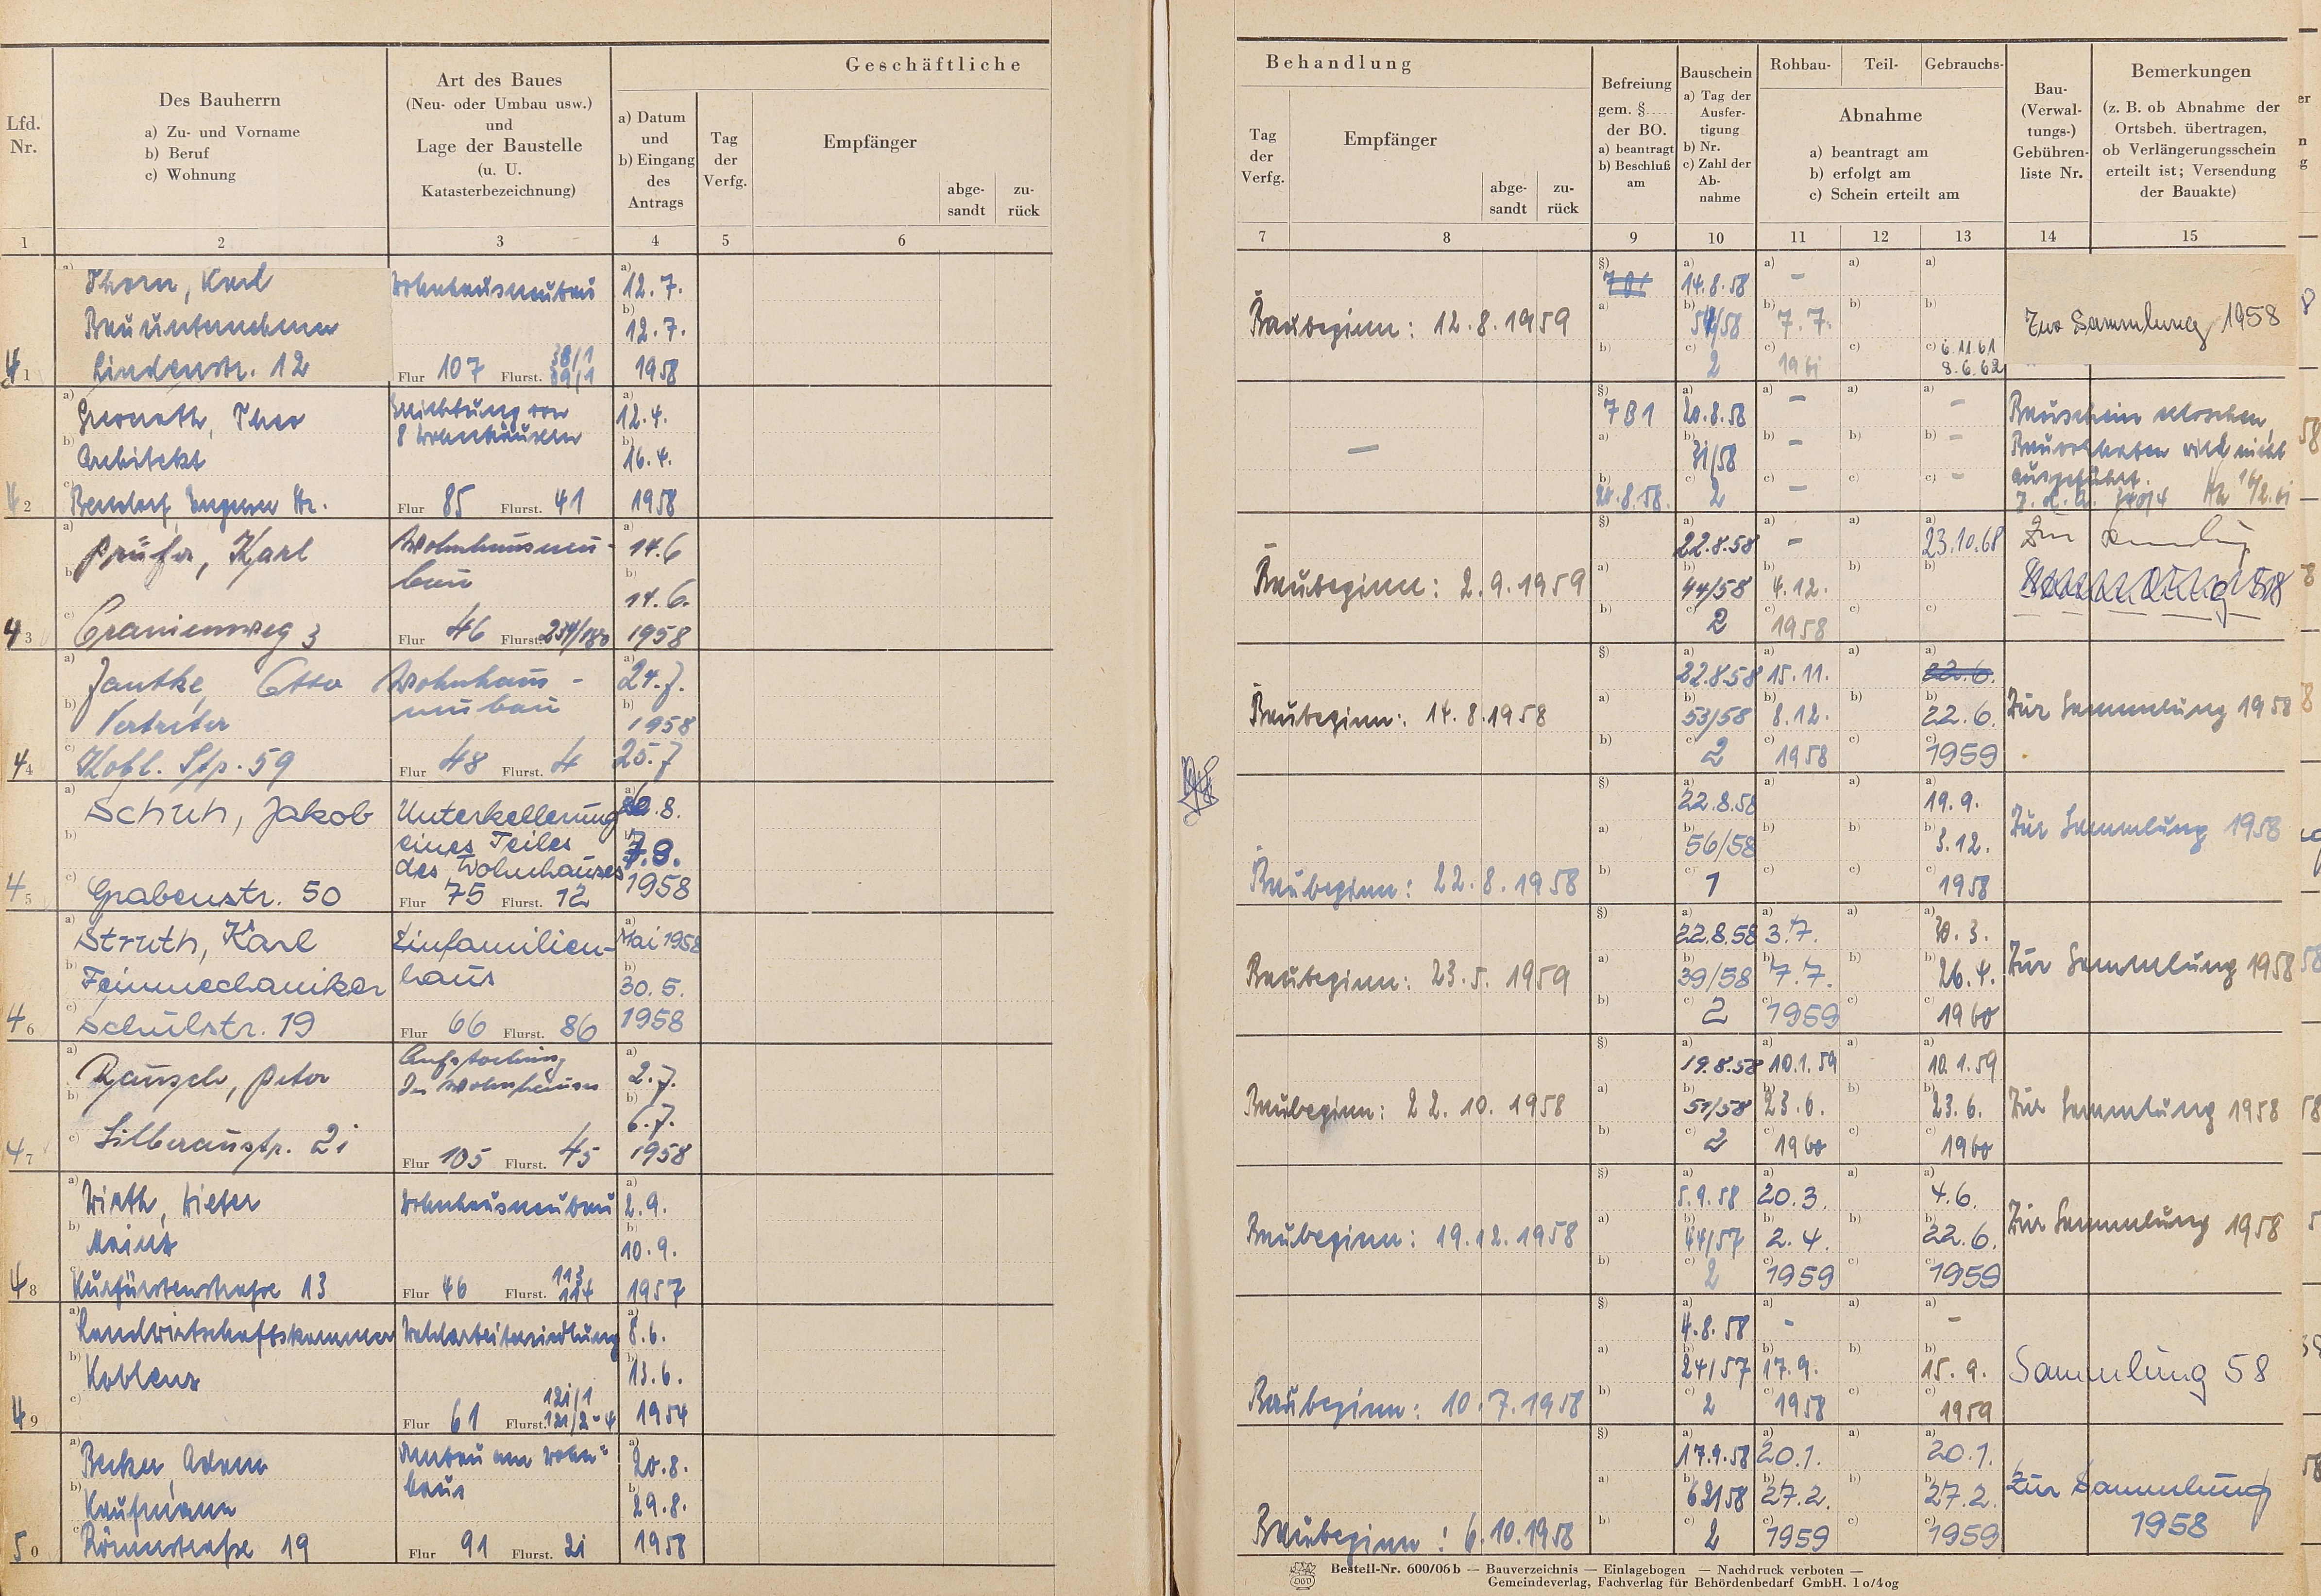 Geschäftliche
Lfd.
Nr.
Des Bauherrn
a) Zu- und Vorname
b) Beruf
c) Wohnung
Art des Baues
(Neu- oder Umbau usw.)
und
Lage der Baustelle
(u. U.
Katasterbezeichnung)
a) Datum
und
b) Eingang
des
Antrags
Tag
der
Verfg.
Empfänger
abge-
sandt
zu-
rück
1 2 3 4 5 6
a) Thorn, Karl
Bauunternehmer
Lindenstr. 12
Wohnhausneubau
Flur 107 Flurst. 38/1
39/1
a) 12.7.
b) 12.7.
1958
41
a) Theo
b) Architekt
c) Bendorf, Engerser Str.
Errichtung von
8 Wohnhäusern
Flur 85 Flurst. 41
12.4.
16.4.
1958
42
a) Prüfer, Karl
b)
c) Oranienweg 3
Wohnhausneu-
bau
Flur 46 Flurst. 254/180
14.6
14.6.
1958
43
a) Jantke, Otto
b) Vertreter
c) Kobl. Str. 59
Wohnhaus-
neubau
Flur 48 Flurst. 4
24.7.
1958
25.7
44
a) Schuh, Jakob
b)
c) Grabenstr. 50
Unterkellerung
eines Teiles
des Wohnhauses
Flur 75 Flurst. 12
8.
7.8.
1958
45
a) Struth, Karl
b) Feinmechaniker
c) Schulstr. 19
Einfamilien-
haus
Flur 66 Flurst. 86
Mai 1958
30.5.
1958
46
a) Rausch, Peter
b)
c) Silberaustr. 21
Aufstockung
des Wohnhauses
Flur 105 Flurst. 45
2.7.
6.7.
1958
47
a) Wirth, Dieter
b) Mainz
c) Kurfürstenstraße 13
Wohnhausneubau
Flur 46 Flurst. 113
114
2.9.
10.9.
1957
48
a) Landwirtschaftskammer
b) Koblenz
c)
Landarbeitersiedlung
Flur 61 Flurst. 121/1
121/2-4
8.6.
13.6.
1954
49
a) Becker, Adam
b) Kaufmann
c) Römerstraße 19
Anbau am Wohn-
haus
Flur 91 Flurst. 21
20.8.
29.8.
1958
50
Behandlung
Tag
der
Verfg.
Empfänger
abge-
sandt
zu-
rück
Befreiung
gem. §.....
der BO.
a) beantragt
b) Beschluß
am
Bauschein
a) Tag der
Ausfer-
tigung
b) Nr.
c) Zahl der
Ab-
nahme
Rohbau- Teil- Gebrauchs-
Abnahme
a) beantragt am
b) erfolgt am
c) Schein erteilt am
Bau-
(Verwal-
tungs-)
Gebühren-
liste Nr.
Bemerkungen
(z. B. ob Abnahme der
Ortsbeh. übertragen,
ob Verlängerungsschein
erteilt ist; Versendung
der Bauakte)
7 8 9 10 11 12 13 14 15
Baubeginn: 12.8.1959
7B1
14.8.58 -
54/58 7.7.
2 1961
6.11.61
8.6.62
Zur Sammlung 1958
-
7B1
20.8.58.
20.8.58 - -
31/58 - -
2 - -
Bauschein erloschen,
Bauvorhaben wird nicht
ausgeführt.
Baubeginn: 2.9.1959
22.8.58 - 23.10.68
44/58 4.12.
2 1958
Zur Sammlung
Baubeginn: 14.8.1958
22.8.58 15.11. 22.6.
53/58 8.12. 22.6.
2 1958 1959
Zur Sammlung 1958
Baubeginn: 22.8.1958
22.8.58 19.9.
56/58 3.12.
1 1958
Zur Sammlung 1958
Baubeginn: 23.5.1959
22.8.58 3.7. 30.3.
39/58 7.7. 26.4.
2 1959 1960
Zur Sammlung 1958
Baubeginn: 22.10.1958
19.8.58 10.1.59 10.1.59
51/58 23.6. 23.6.
2 1960 1960
Zur Sammlung 1958
Baubeginn: 19.12.1958
5.9.58 20.3. 4.6.
44/57 2.4. 22.6.
2 1959 1959
Zur Sammlung 1958
Baubeginn: 10.7.1958
4.8.58 - -
24/57 17.9. 15.9.
2 1958 1959
Sammlung 58
Baubeginn: 6.10.1958
17.9.58 20.1. 20.1.
62/58 27.2. 27.2.
2 1959 1959
Zur Sammlung
1958
Bestell-Nr. 600/06 b — Bauverzeichnis — Einlagebogen — Nachdruck verboten —
Gemeindeverlag, Fachverlag für Behördenbedarf GmbH. 1o/4og